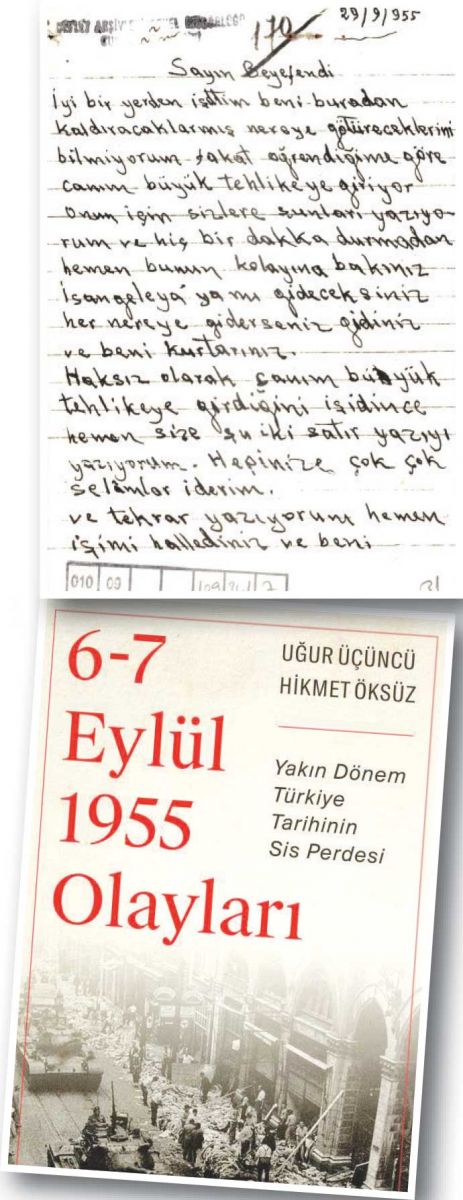 29/9/955
170
Sayın Beyefendi
İyi bir yerden işittim beni buradan
kaldıracaklarmış nereye götüreceklerini
bilmiyorum fakat öğrendiğime göre
canım büyük tehlikeye giriyor
onun için sizlere şunları yazıyo-
rum ve hiç bir dakka durmadan
hemen bunun kolayına bakınız
İsangeleya' ya mı gideceksiniz
her nereye giderseniz gidiniz
ve beni kurtarınız.
Haksız olarak canım büyük
tehlikeye girdiğini işidince
hemen size şu iki satır yazıyı
yazıyorum. Hepinize çok çok
selâmlar iderim.
ve tekrar yazıyorum hemen
işimi hallediniz ve beni
010 09
6-7
Eylül
1955
Olayları
UĞUR ÜÇÜNCÜ
HİKMET ÖKSÜZ
Yakın Dönem
Türkiye
Tarihinin
Sis Perdesi